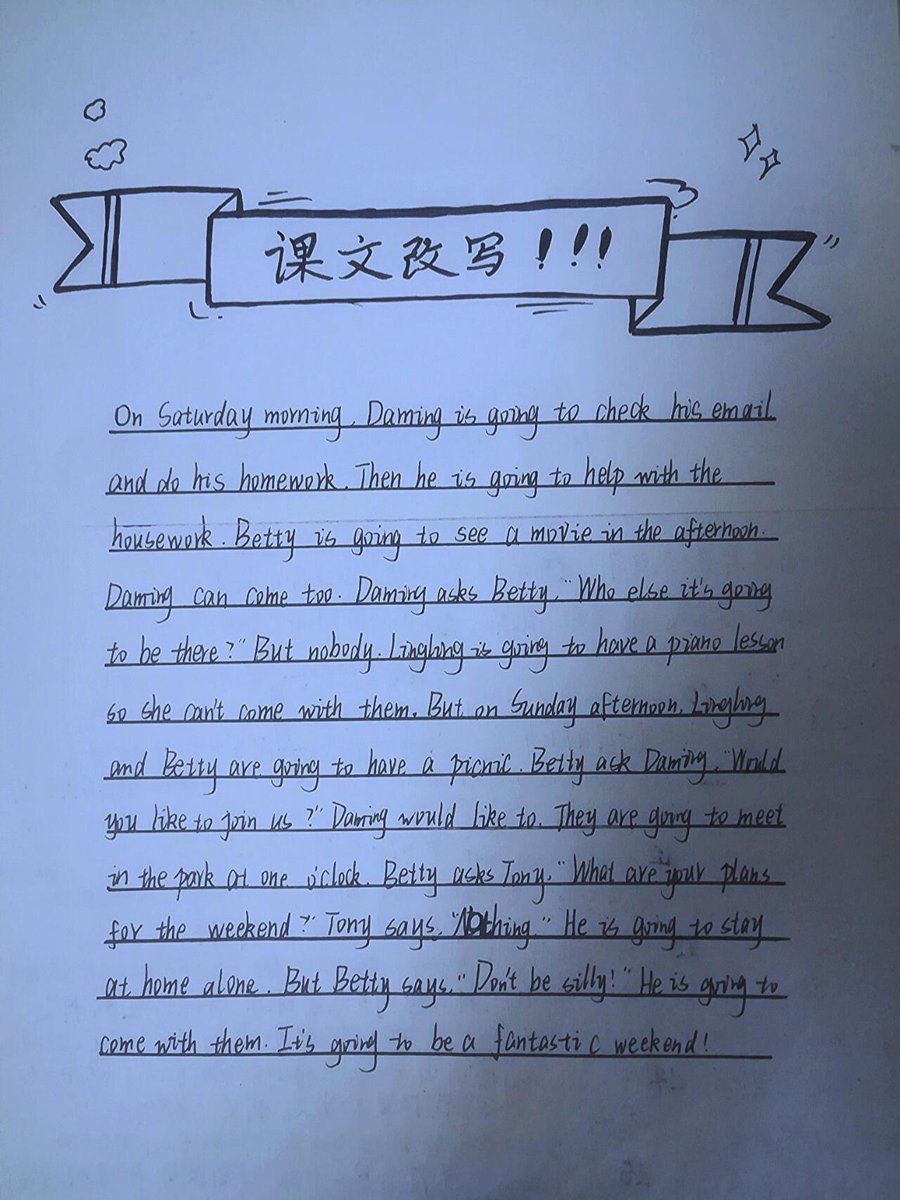 课文改写!!!
On Saturday morning, Daming is going to check his email
and do his homework. Then he is going to help with the
housework. Betty is going to see a movie in the afternoon.
Daming can come too. Daming asks Betty, "Who else it's going
to be there?" But nobody. Lingling is going to have a piano lesson
so she can't come with them. But on Sunday afternoon, Lingling
and Betty are going to have a picnic. Betty ask Daming, "Would
you like to join us?" Daming would like to. They are going to meet
in the park at one o'clock. Betty asks Tony, "What are your plans
for the weekend?" Tony says, "Nothing." He is going to stay
at home alone. But Betty says, "Don't be silly!" He is going to
come with them. It's going to be a fantastic weekend!